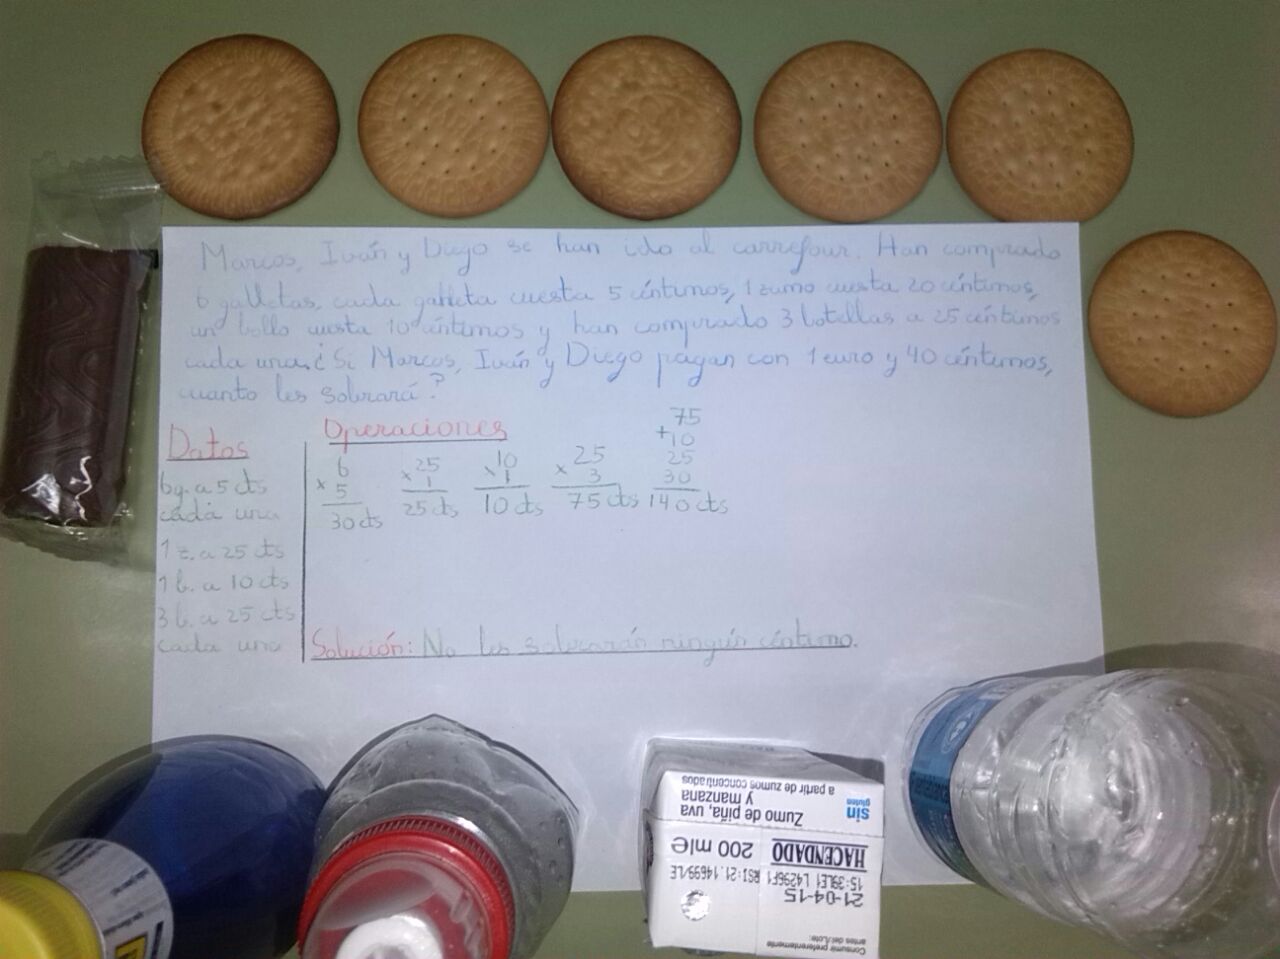 Marcos, Iván y Diego se han ido al carrefour. Han comprado
6 galletas, cada galleta cuesta 5 céntimos, 1 zumo cuesta 20 céntimos,
un bollo cuesta 10 céntimos y han comprado 3 botellas a 25 céntimos
cada una. ¿Si Marcos, Iván y Diego pagan con 1 euro y 40 céntimos,
cuanto les sobrará?
Datos
6g. a 5 cts
cada una
1 z. a 25 cts
1 b. a 10 cts
3 b. a 25 cts
cada una
Operaciones
6
x 5
30 cts
25
x 1
25 cts
10
x 1
10 cts
25
x 3
75 cts
75
+10
25
30
140 cts
Solución: No les sobrarán ningún céntimo.
Consumir preferentemente
antes del:/Lote:
21-04-15
15:39LE1 L4296F1 RSI:21.14699/LE
HACENDADO 200 ml e
Zumo de piña, uva
y manzana
a partir de zumos concentrados
sin
gluten